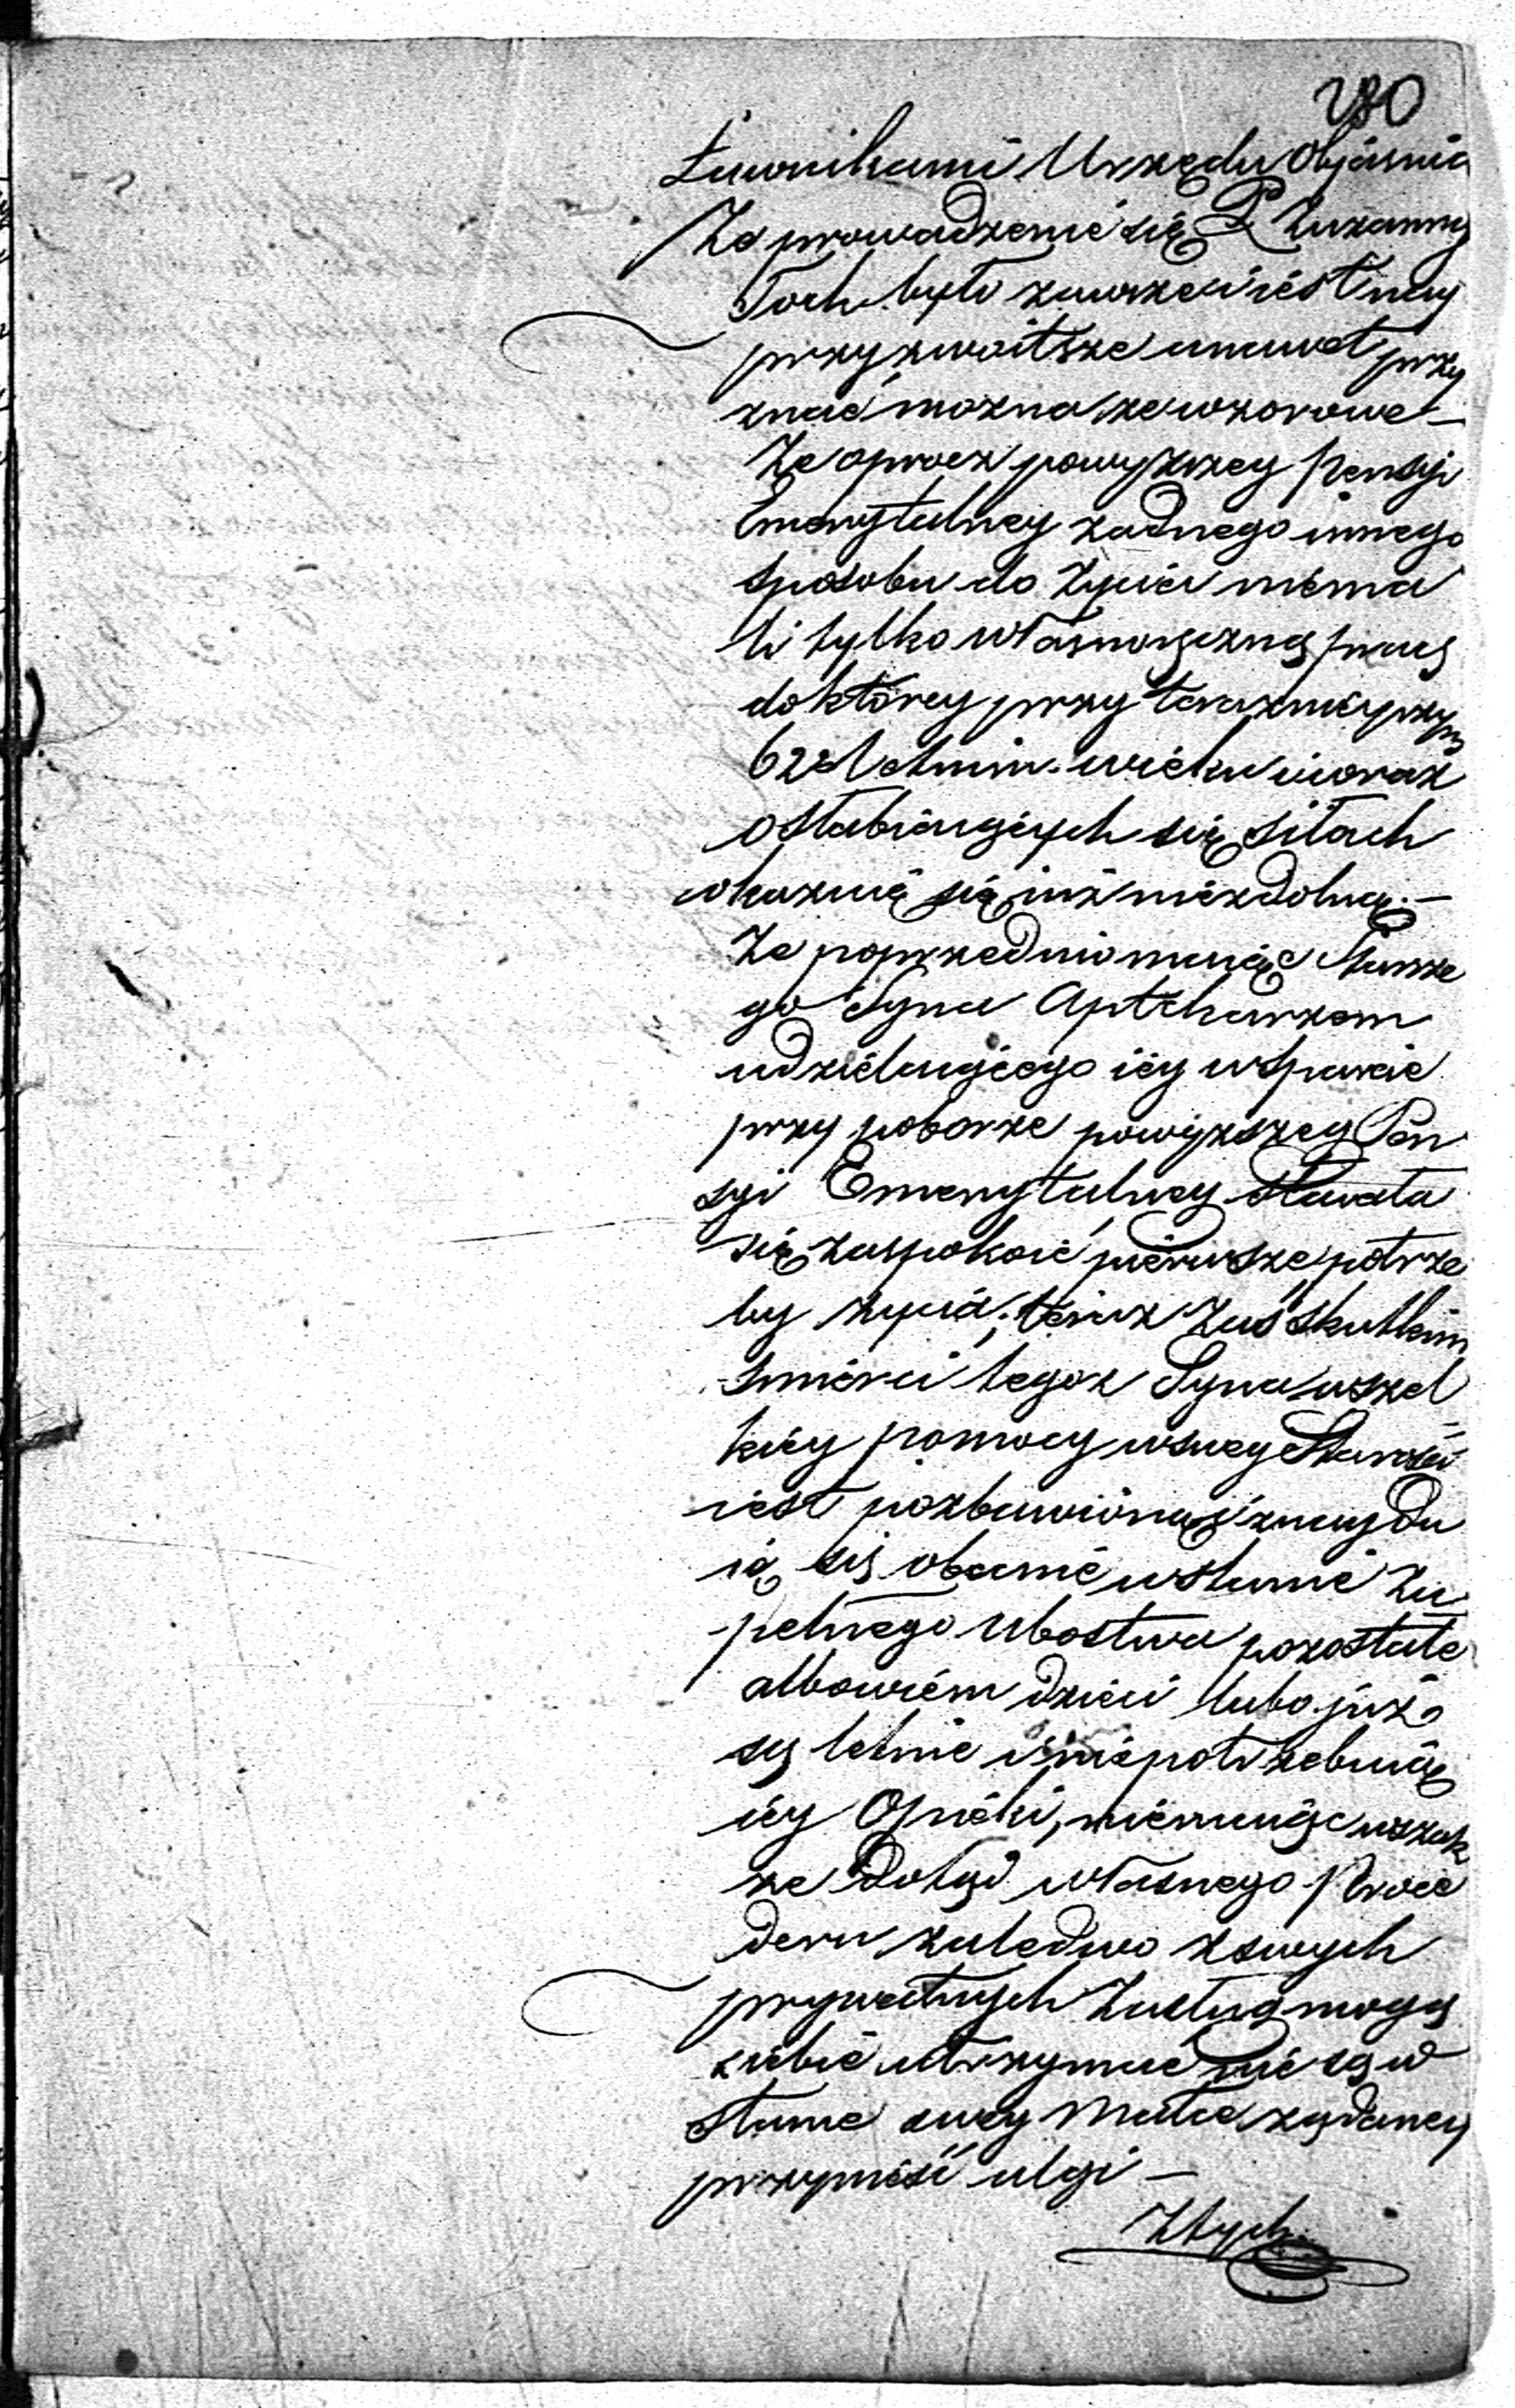 280
Ławnikami Urzędu objaśnia
Że prowadzenie się P Zuzanny
Toch było zawsze i iest nay
przyzwoitsze a nawet przy
znać można że wzorowe –
Że oprócz powyższey Pensyi
Emerytalney żadnego innego
sposobu do życia niema
li tylko własnoręczną pracę
do którey przy teraznieyszym
62 Letnim wieku i coraz
osłabiaiących się siłach
okazuie się iuż niezdolną. –
Że poprzednio maiąc Starsze
go Syna Aptekarzem
udzielaiącego iéy wsparcie
przy poborze powyższey Pen
syi Emerytalney starała
się zaspokoić pierwsze potrze
by życia; teraz zaś skutkiem
śmierci tegoż Syna wszel
kiéy pomocy w swey Starości
iest pozbawioną i znaydu
ie się obecnie w stanie Zu
pełnego Ubóstwa pozostałe
albowiém dzieci lubo już
są letnie i niepotrzebuią
iéy Opieki, niemaiąc wszak
że dotąd własnego Proce
deru zaledwo z swych
prywatnych Zasług mogą
siebie utrzymać nie są w
stanie swey Matce żądaney
przynieść ulgi –